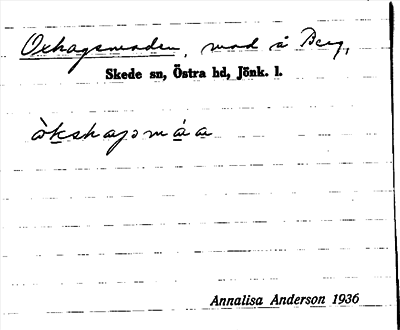 Oxhagsmaden, mad å Berg,
Skede sn, Östra hd, Jönk. l.
òkshagsmáa
Annalisa Anderson 1936